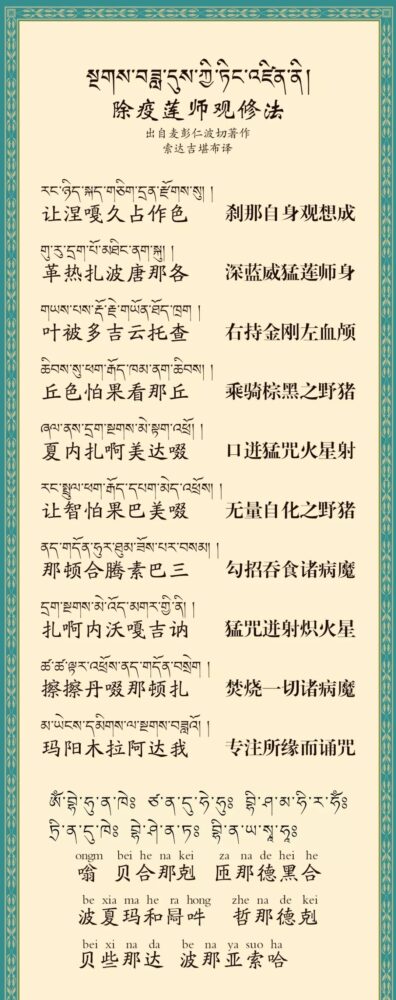 སྔགས་བཟླ་དུས་ཀྱི་ཏིང་འཛིན་ནི།
除疫莲师观修法
出自麦彭仁波切著作
索达吉堪布译
རང་ཉིད་སྐད་ཅིག་དྲན་རྫོགས་སུ། །
让涅嘎久占作色 刹那自身观想成
གུ་རུ་དྲག་པོ་མཐིང་ནག་སྐུ། །
革热扎波唐那各 深蓝威猛莲师身
གཡས་པས་རྡོ་རྗེ་གཡོན་ཐོད་ཁྲག །
叶被多吉云托查 右持金刚左血颅
ཆིབས་སུ་ཕག་རྒོད་ཁམ་ནག་ཆིབས། །
丘色怕果看那丘 乘骑棕黑之野猪
ཞལ་ནས་དྲག་སྔགས་མེ་སྟག་འཕྲོ། །
夏内扎啊美达啜 口迸猛咒火星射
རང་སྤྲུལ་ཕག་རྒོད་དཔག་མེད་འཕྲོས། །
让智怕果巴美啜 无量自化之野猪
ནད་གདོན་ཧུར་ཐུམ་ཟོས་པར་བསམ། །
那顿合腾素巴三 勾招吞食诸病魔
དྲག་སྔགས་མེ་འོད་མགར་གྱི་ནི། །
扎啊内沃嘎吉讷 猛咒迸射炽火星
ཚ་ཚ་ལྟར་འཕྲོས་ནད་གདོན་བསྲེག །
擦擦丹啜那顿扎 焚烧一切诸病魔
མ་ཡེངས་དམིགས་ལ་སྔགས་བཟླའོ། །
玛阳木拉阿达我 专注所缘而诵咒
ongm bei he na kei za na de hei he
嗡 贝合那剋 匝那德黑合
be xia ma he ra hong zhe na de kei
波夏玛和冔吽 哲那德剋
bei xi na da be na ya suo ha
贝些那达 波那亚索哈